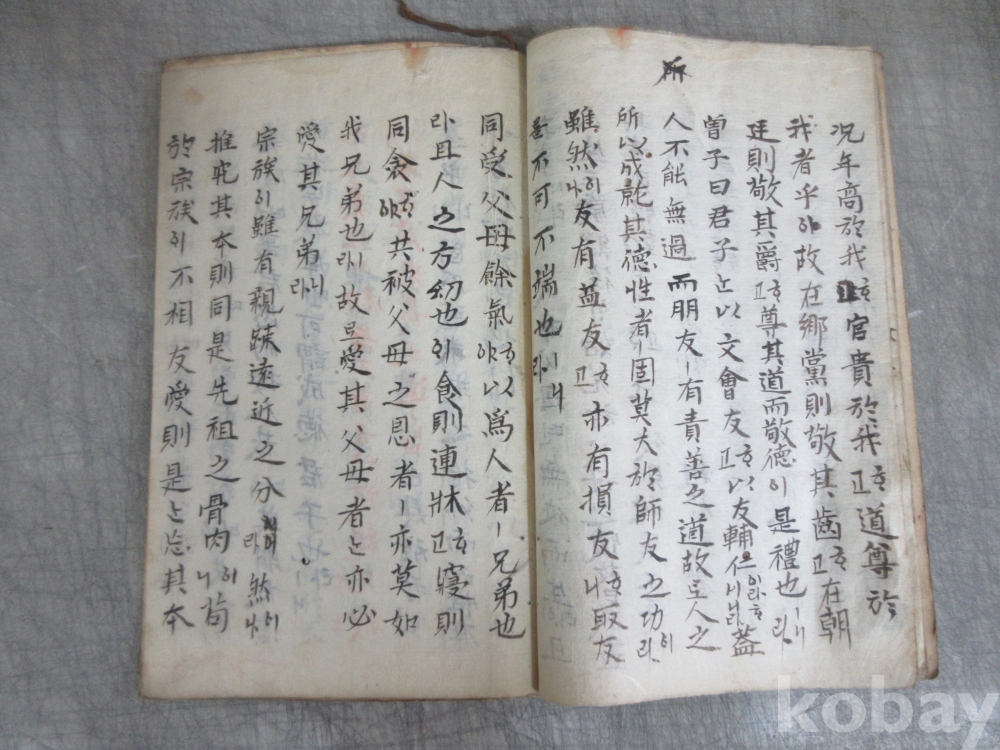 所
况年高於我ᄒᆞ고官貴於我ᄒᆞ고道尊於
我者乎아故在鄕黨則敬其齒ᄒᆞ고在朝
廷則敬其爵ᄒᆞ고尊其道而敬德이是禮也ㅣ니라
曾子曰君子는以文會友ᄒᆞ고以友輔仁이라ᄒᆞ시니라盖
人不能無過而朋友ㅣ有責善之道故로人之
所以成就其德性者ㅣ固莫大於師友之功이라
雖然이나友有益友ᄒᆞ고亦有損友ᄒᆞ니取友
를不可不瑞也ㅣ니라
同受父母餘氣ᄒᆞ야以爲人者ㅣ兄弟也
라且人之方幼也에食則連牀ᄒᆞ고寢則
同衾ᄒᆞ야共被父母之恩者ㅣ亦莫如
我兄弟也ㅣ라故로愛其父母者는亦必
愛其兄弟니라
宗族이雖有親踈遠近之分然이나
推究其本則同是先祖之骨肉이니苟
於宗族이不相友愛則是는忘其本
kobay